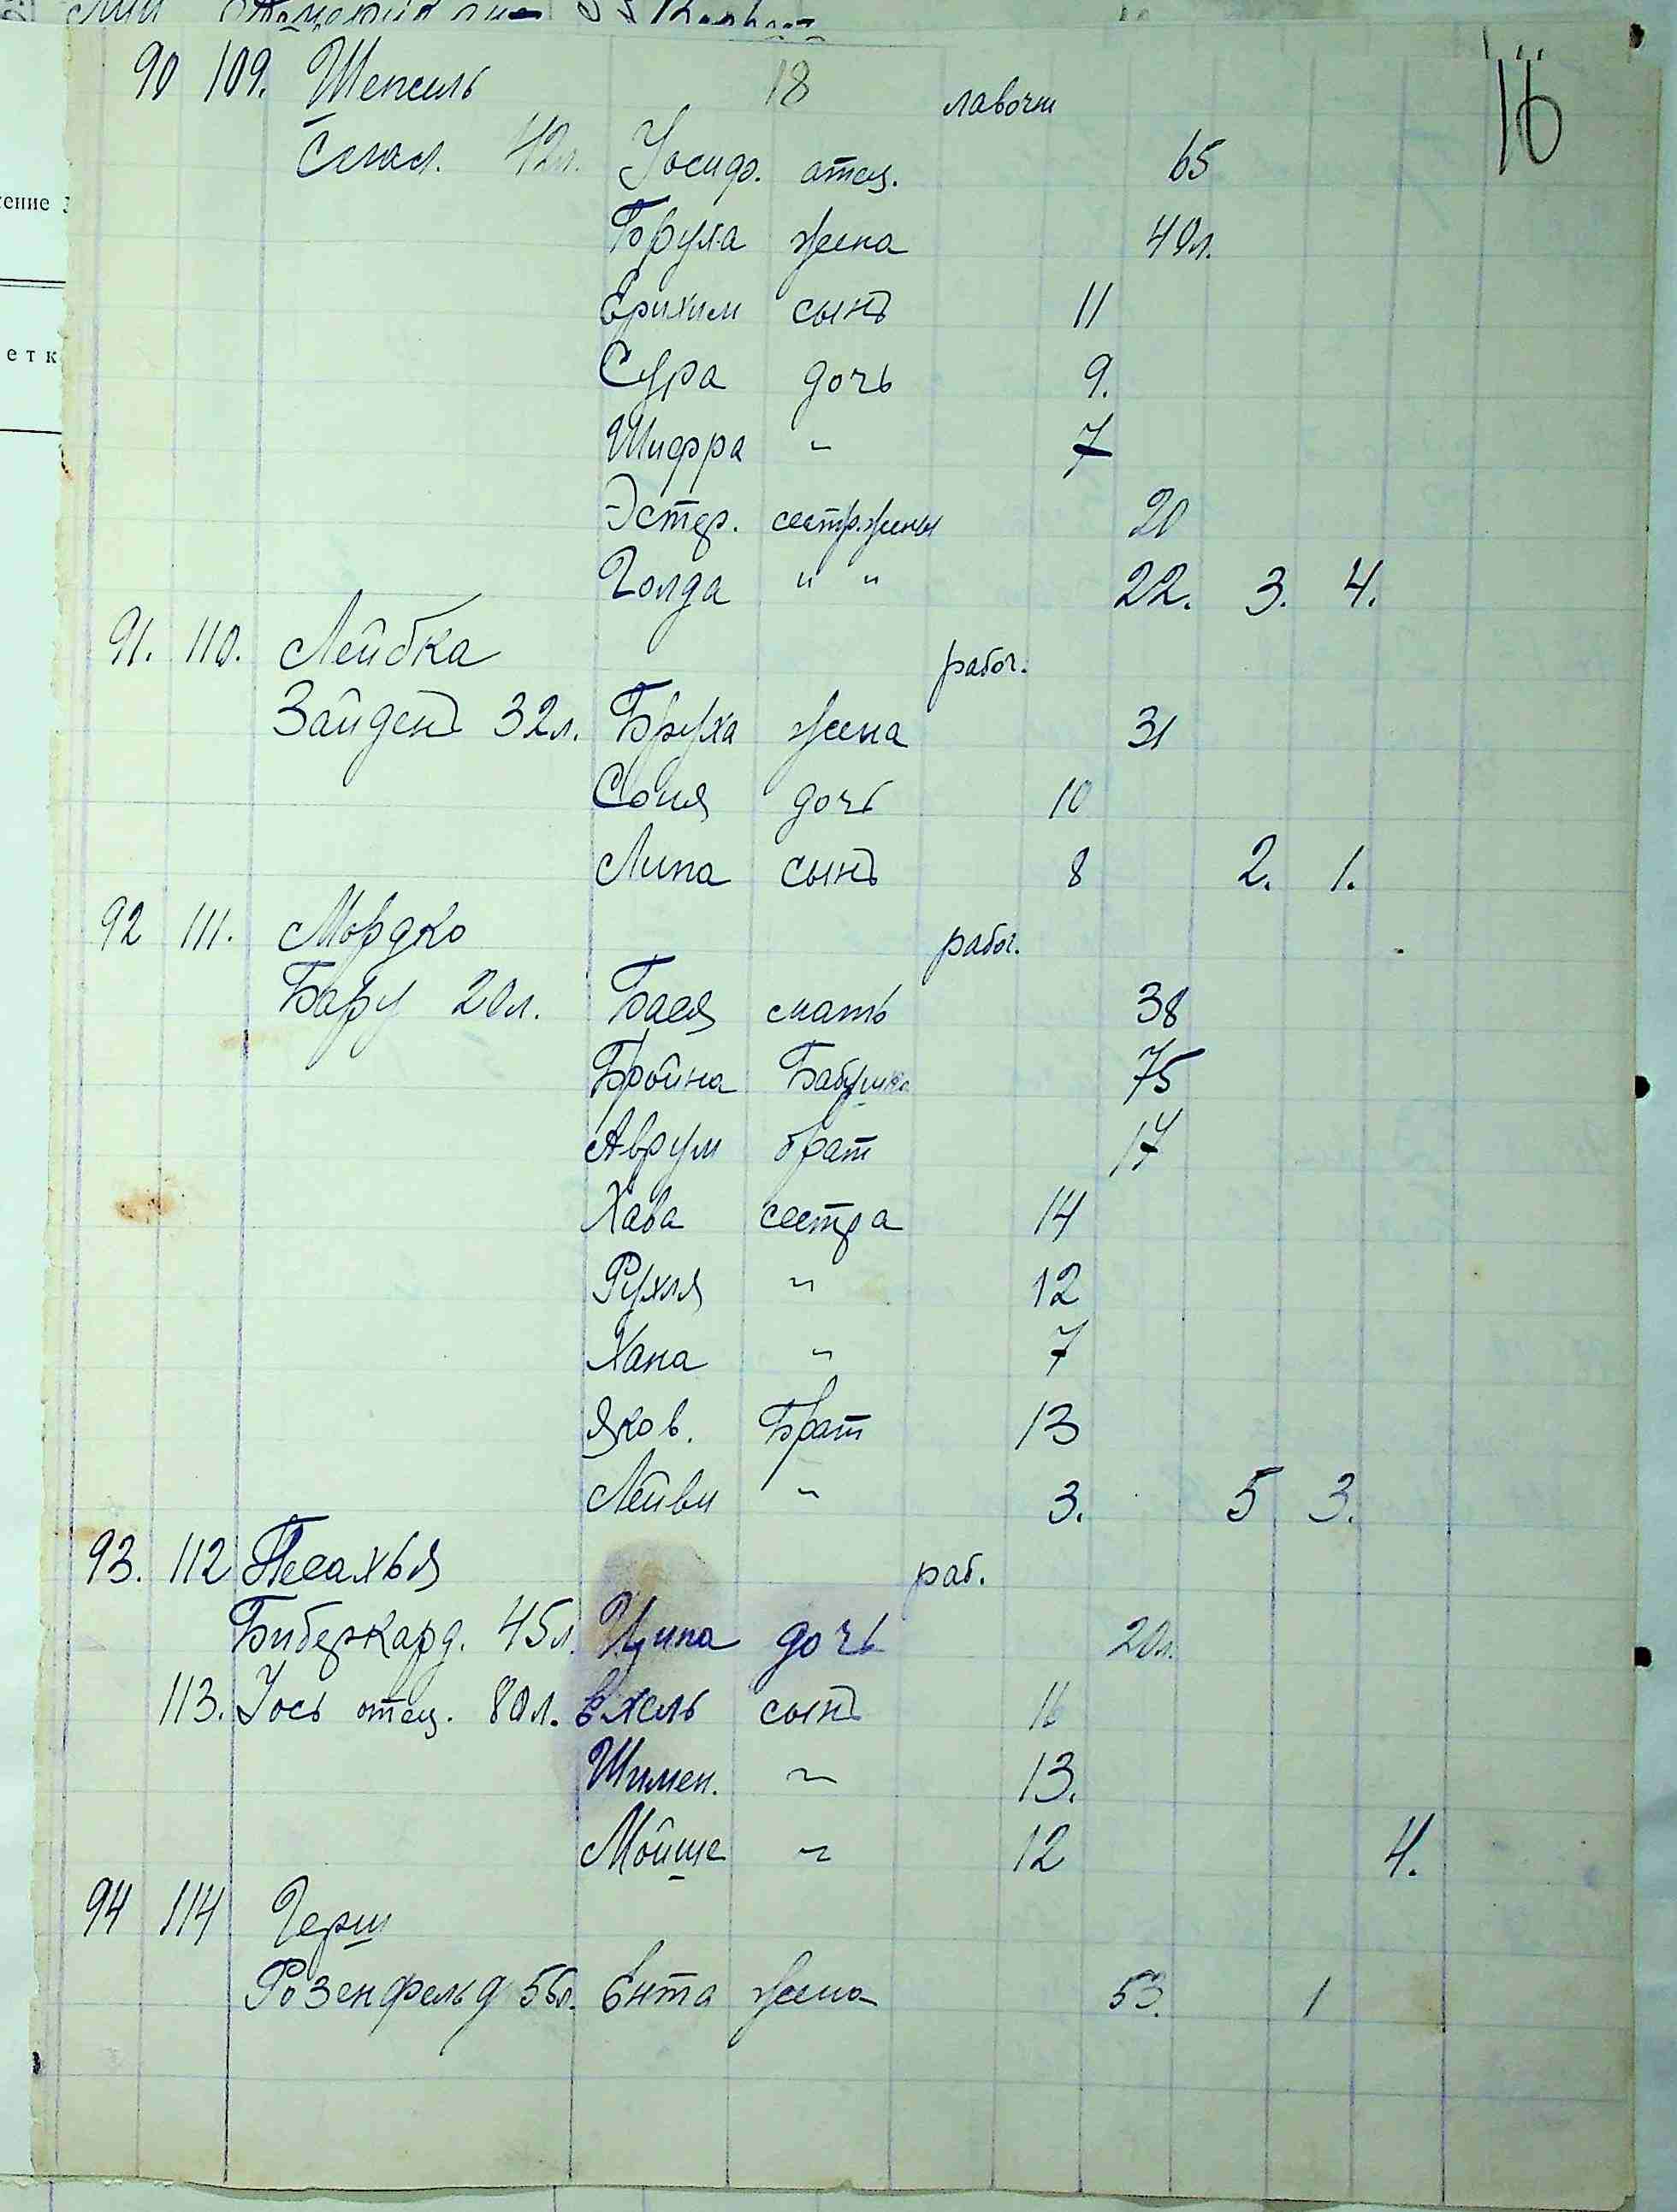 90 109. Шепсиль 18 лавочн 16
42л. Иосиф. отец. 65
Бруха жена 40л.
Ерихим сынъ 11
Сура дочь 9.
Шифра " 7
Эстер. сестр. жены 20
Голда " " 22. 3. 4.
91. 110. Лейбка рабоч.
Зайденъ 32л. Бруха жена 31
Соня дочь 10
Липа сынъ 8 2. 1.
92 111. Мордко рабоч.
Бару 20л. Бася мать 38
Бройна Бабушка 75
Аврум брат 17
Хава сестра 14
Рухля " 12
Хана " 7
Яков. Брат 13
Лейви " 3. 5 3.
93. 112 Песахья раб.
Биберкард. 45л. Ципа дочь 20л.
113. Иось отец. 80л. Ехель сынъ 16
Шимен. " 13.
Мойше " 12 4.
94 114 Герш
Розенфельд 56л. Ента жена 53. 1
ение
етк